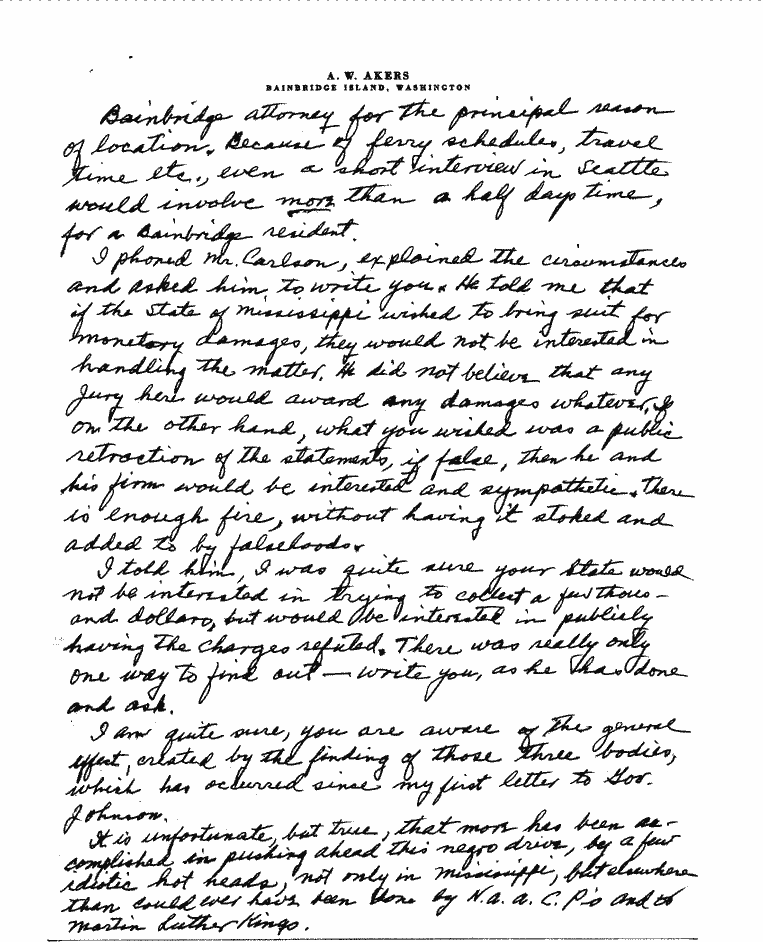 A. W. AKERS
BAINBRIDGE ISLAND, WASHINGTON
Bainbridge attorney for the principal reason
of location. Because of ferry schedules, travel
time etc., even a short interview in Seattle
would involve more than a half days time,
for a Bainbridge resident.
I phoned Mr. Carlson, explained the circumstances
and asked him, to write you. He told me that
if the State of Mississippi wished to bring suit for
monetary damages, they would not be interested in
handling the matter. He did not believe that any
Jury here would award any damages whatever. If
on the other hand, what you wished was a public
retraction of the statements, if false, then he and
his firm would be interested and sympathetic. There
is enough fire, without having it stoked and
added to by falsehoods.
I told him, I was quite sure your State would
not be interested in trying to collect a few thous-
and dollars, but would be interested in publicly
having the charges refuted. There was really only
one way to find out — write you, as he has done
and ask.
I am quite sure, you are aware of the general
effect, created by the finding of those three bodies,
which has occurred since my first letter to Gov.
Johnson.
It is unfortunate, but true, that more has been ac-
complished in pushing ahead this negro drive, by a few
idiotic hot heads, not only in Mississippi, but elsewhere
than could ever have been done by N.A.A.C.P's and
Martin Luther Kings.